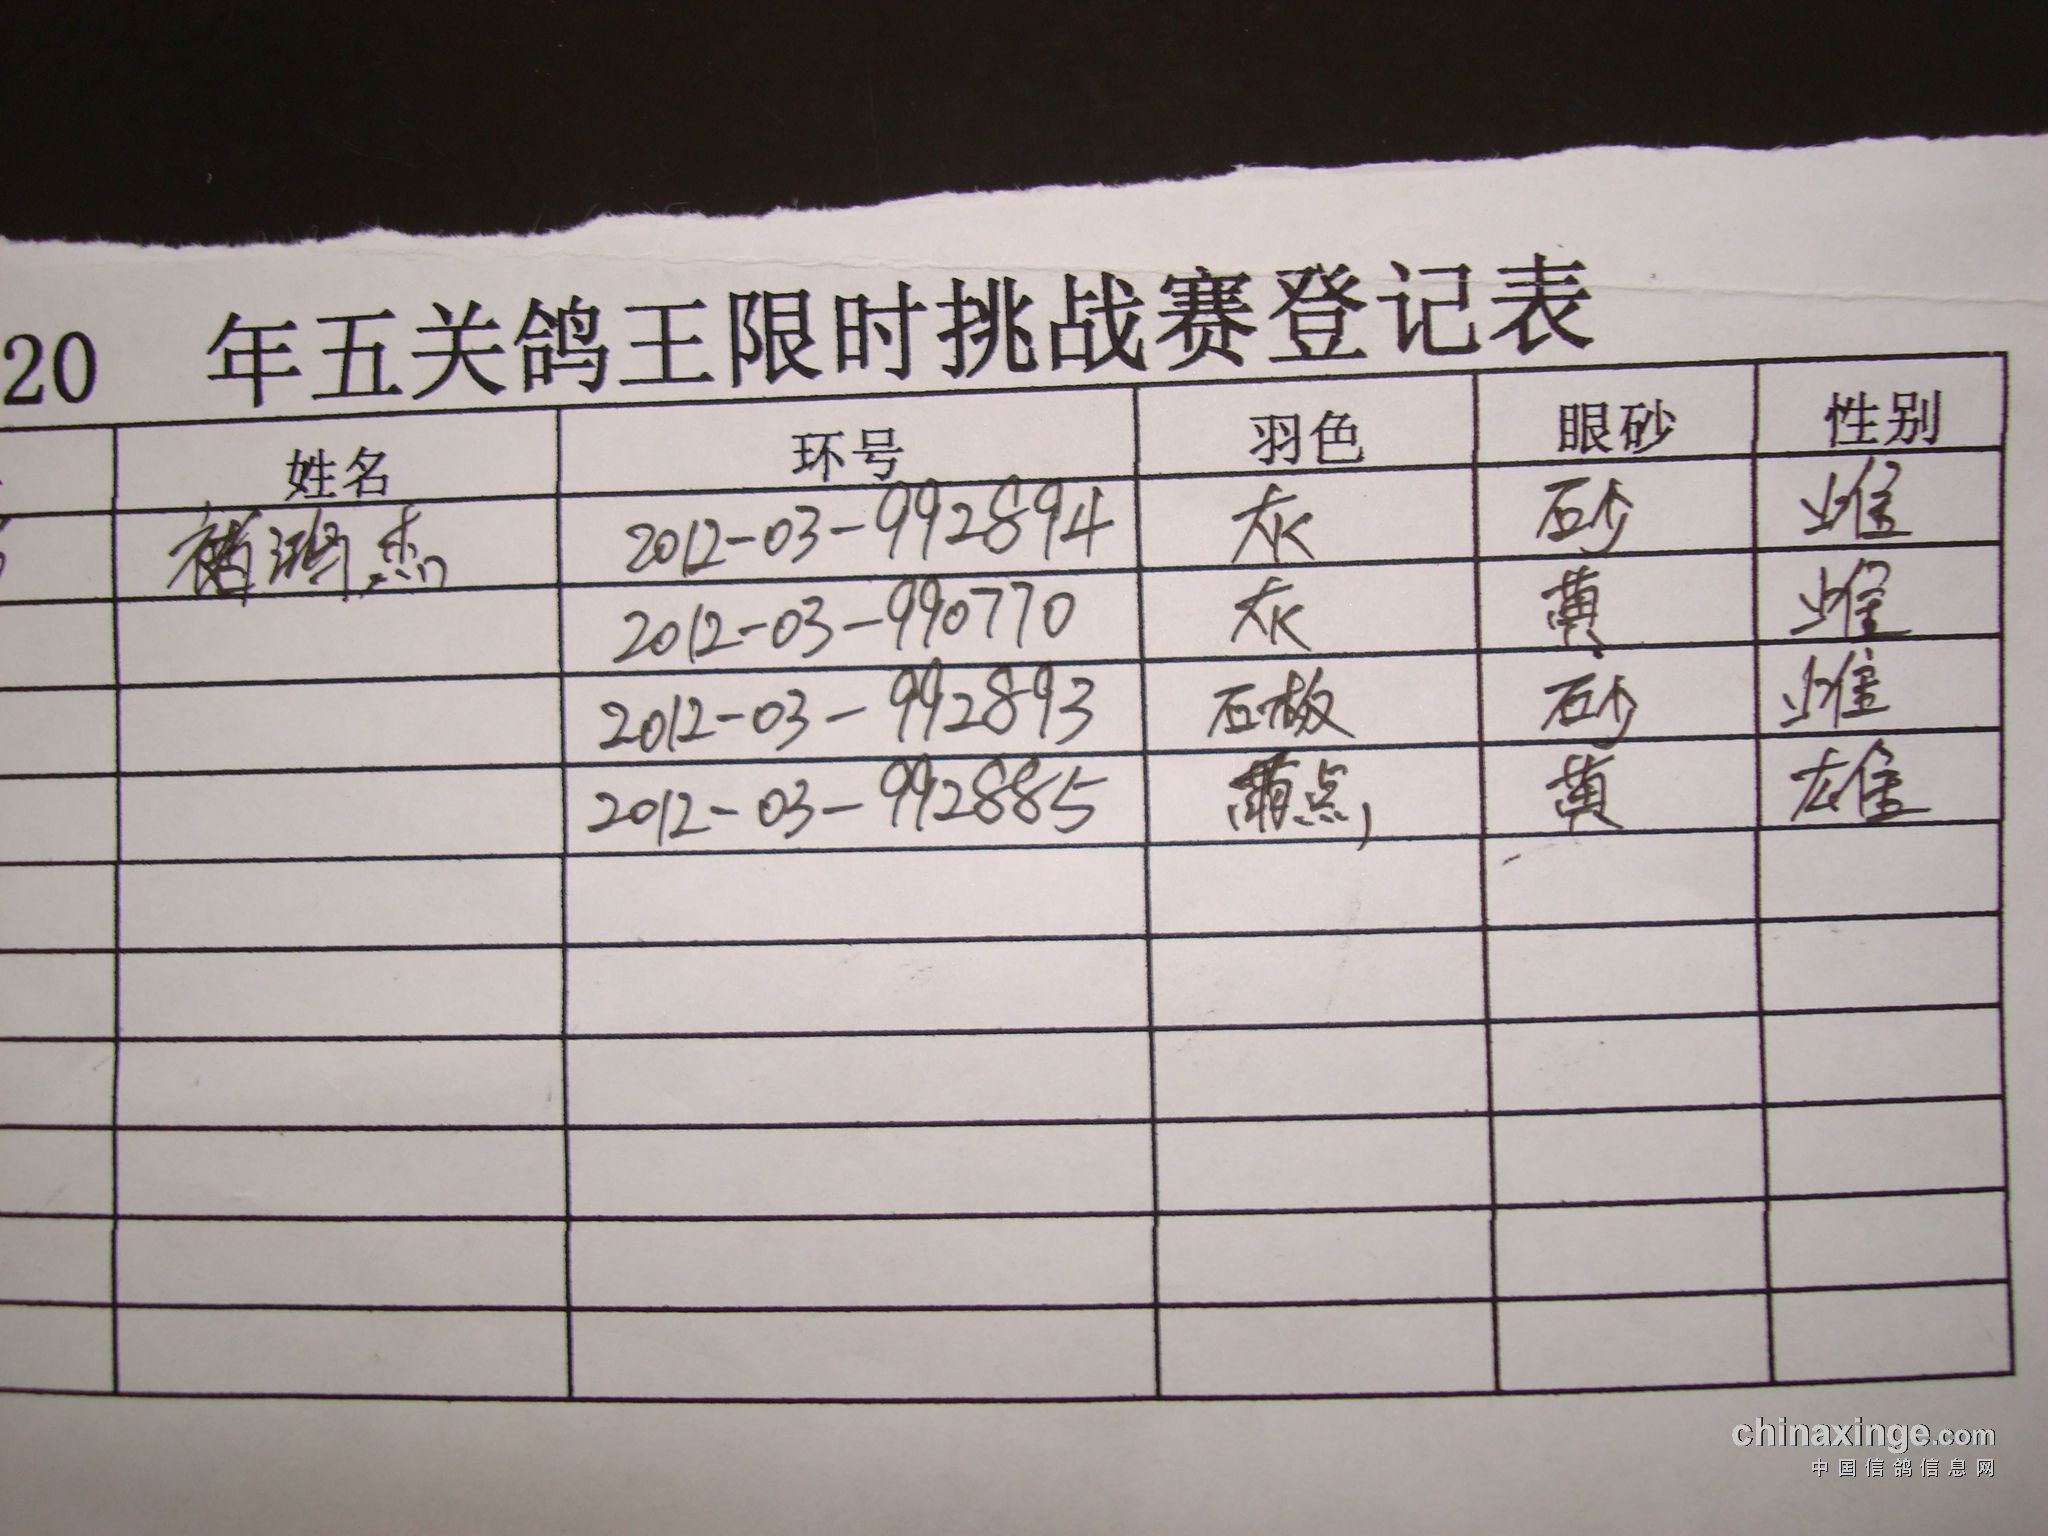 20 年五关鸽王限时挑战赛登记表
姓名 环号 羽色 眼砂 性别
褚鸿杰 2012-03-992894 灰 砂 雌
2012-03-990770 灰 黄 雌
2012-03-992893 石板 砂 雌
2012-03-992885 点 黄 雄
chinaxinge.com
中国信鸽信息网